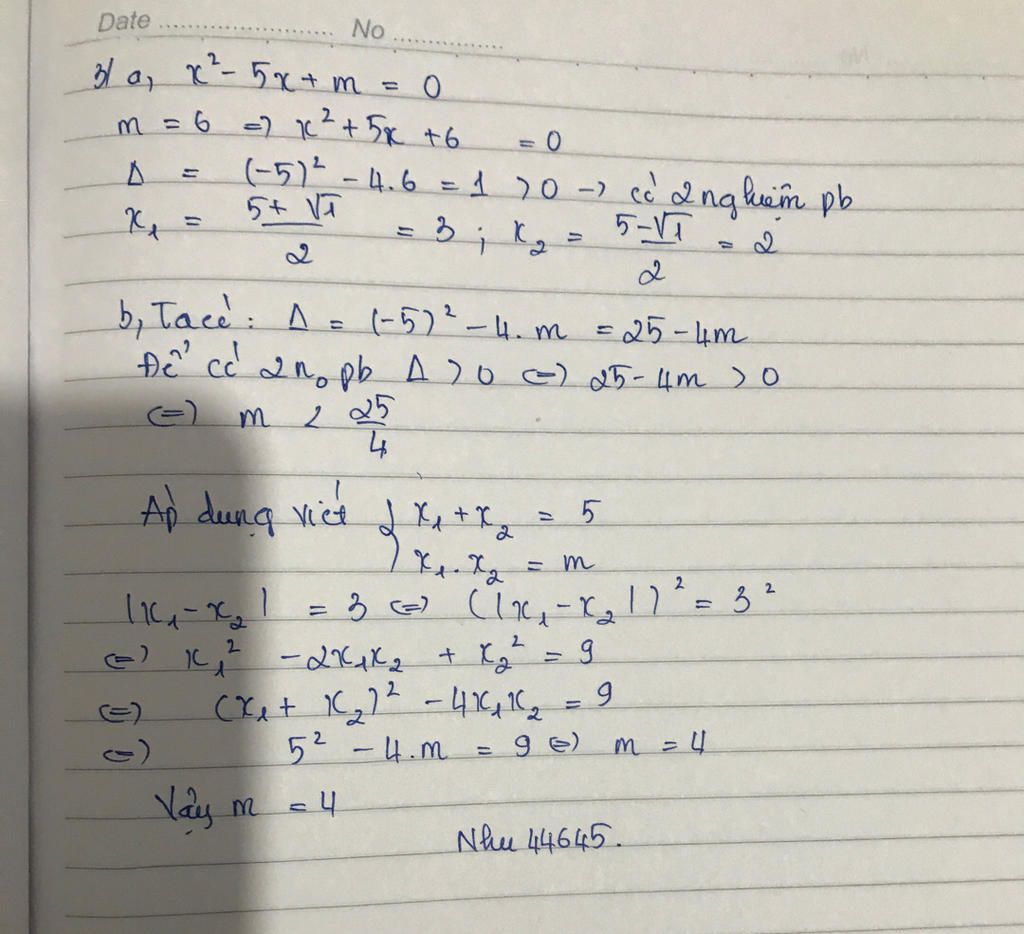 Date ........................ No ................
3/ a, x² - 5x + m = 0
m = 6 => x² + 5x + 6 = 0
Δ = (-5)² - 4.6 = 1 > 0 -> có 2 nghiệm pb
x₁ = (5 + √1)/2 = 3 ; x₂ = (5 - √1)/2 = 2
b, Ta có : Δ = (-5)² - 4. m = 25 - 4m
Để có 2 n₀ pb Δ > 0 <=> 25 - 4m > 0
<=> m < 25/4
Áp dụng viét { x₁ + x₂ = 5
x₁. x₂ = m
|x₁ - x₂| = 3 <=> (|x₁ - x₂|)² = 3²
<=> x₁² - 2x₁x₂ + x₂² = 9
<=> (x₁ + x₂)² - 4x₁x₂ = 9
<=> 5² - 4.m = 9 <=> m = 4
Vậy m = 4
Nhu 44645.